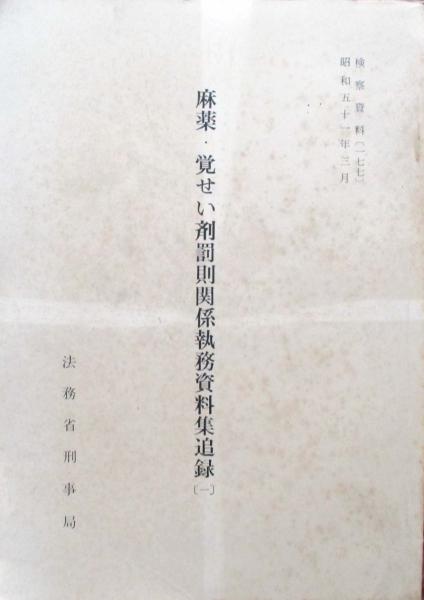 検察資料〔一七七〕
昭和五十一年三月
麻薬・覚せい剤罰則関係執務資料集追録〔一〕
法務省刑事局